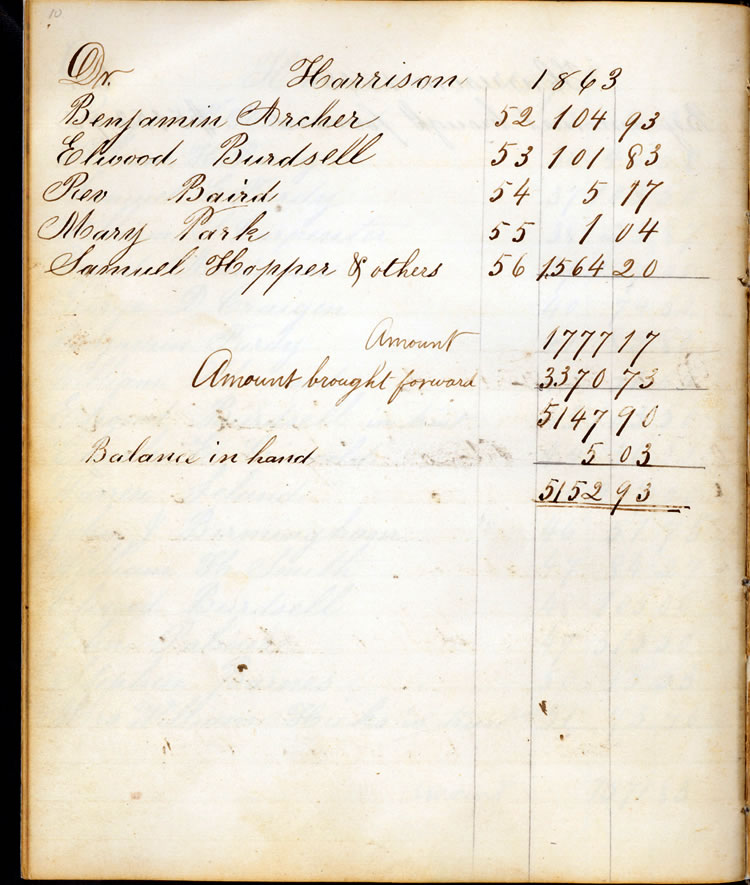 10
Dr. Harrison 1863
Benjamin Archer 52 104 93
Elwood Burdsell 53 101 83
Rev Baird 54 5 17
Mary Park 55 1 04
Samuel Hopper & others 56 1564 20
Amount 1777 17
Amount brought forward 3370 73
5147 90
Balance in hand 5 03
5152 93